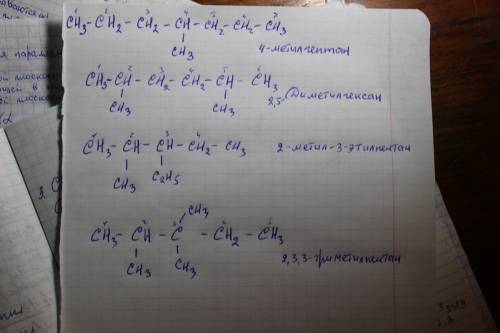 1 2 3 4 5 6 7
CH3 – CH2 – CH2 – CH – CH2 – CH2 – CH3
CH3
4-метилгептан
1 2 3 4 5 6
CH3 – CH – CH2 – CH2 – CH – CH3
CH3 CH3
2,5-Диметилгексан
1 2 3 4
CH3 – CH – CH – CH2 – CH3
CH3 C2H5
2-метил-3-этилпентан
CH3
1 2 3 4 5
CH3 – CH – C – CH2 – CH3
CH3 CH3
2,3,3-триметилпентан